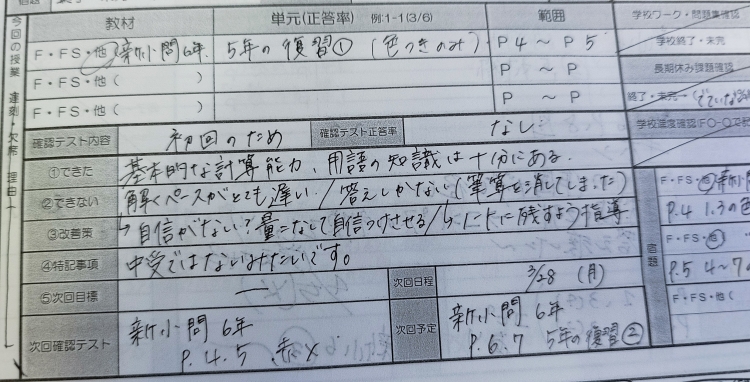 教材 単元(正答率) 例:1-1(3/6) 範囲 学校ワーク・問題集確認
F・FS・他(新小問6年. 5年の復習① (色つきのみ) P 4 ~ P 5 学校終了・未完
F・FS・他( ) P ~ P 長期休み課題確認
F・FS・他( ) P ~ P 終了・未完→
今回の授業 遅刻・欠席(理由→
確認テスト内容 初回のため 確認テスト正答率 なし
①できた 基本的な計算能力、用語の知識は十分にある.
②できない 解くペースがとても遅い/答えしかない(筆算を消してしまった)
③改善策 ↳自信がない?量こなして自信つけさせる/↳ノートに残すよう指導
④特記事項 中受ではないみたいです。
⑤次回目標 ー 次回日程 3/28 (月)
次回確認テスト 新小問 6年 P.4.5 赤× 次回予定 新小問 6年 P.6.7 5年の復習②
宿題
F・FS・他
P.4 1.3の
F・FS・他
P.5 4~7
F・FS・他(